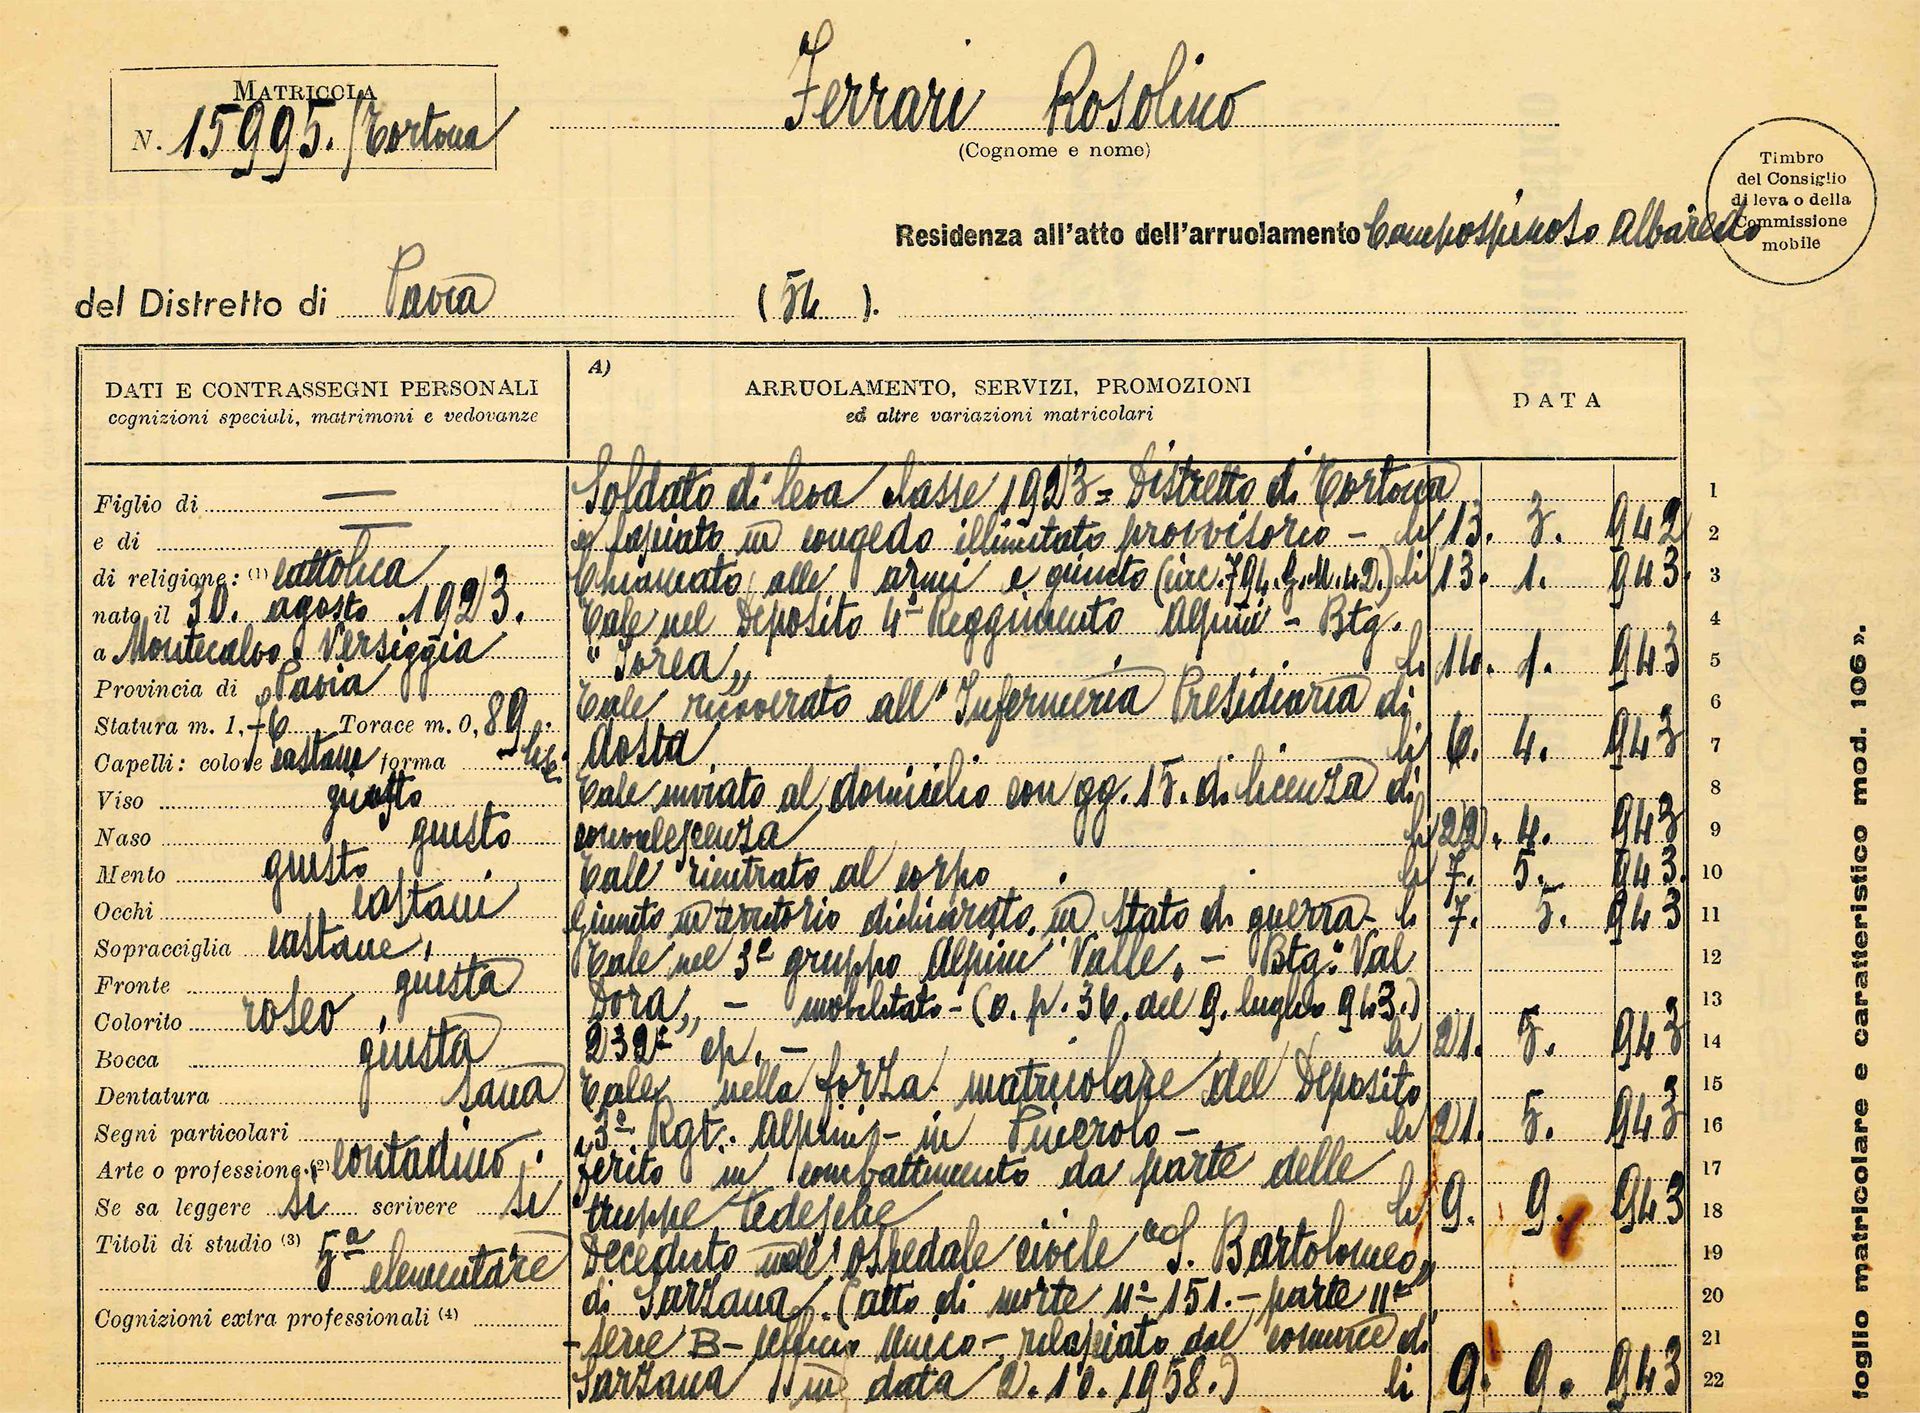 MATRICOLA
N. 15995./Tortona
Ferrari Rosolino
(Cognome e nome)
Timbro
del Consiglio
di leva o della
Commissione
mobile
Residenza all'atto dell'arruolamento Campospinoso Albaredo
del Distretto di Pavia (54).
DATI E CONTRASSEGNI PERSONALI
cognizioni speciali, matrimoni e vedovanze
Figlio di —
e di —
di religione: (1) cattolica
nato il 30. agosto 1923.
a Montecalvo Versiggia
Provincia di Pavia
Statura m. 1, 76 Torace m. 0, 89
Capelli: colore castani forma lisci
Viso giusto
Naso giusto
Mento giusto
Occhi castani
Sopracciglia castane
Fronte giusta
Colorito roseo
Bocca giusta
Dentatura sana
Segni particolari
Arte o professione (2) contadino
Se sa leggere si scrivere si
Titoli di studio (3) 5ª elementare
Cognizioni extra professionali (4)
A)
ARRUOLAMENTO, SERVIZI, PROMOZIONI
ed altre variazioni matricolari
DATA
Soldato di leva classe 1923 = Distretto di Tortona 1
e lasciato in congedo illimitato provvisorio - li 13. 3. 942 2
Chiamato alle armi e giunto (circ. 794. G.M. 42.) li 13. 1. 943. 3
Tale nel Deposito 4º Reggimento Alpini - Btg. 4
"Ivrea" li 14. 1. 943 5
Tale ricoverato all'Infermeria Presidiaria di 6
Aosta li 6. 4. 943 7
Tale inviato al domicilio con gg. 15. di licenza di 8
convalescenza li 22. 4. 943 9
Tale rientrato al corpo li 7. 5. 943. 10
Giunto in territorio dichiarato in stato di guerra - li 7. 5. 943 11
Tale nel 3º gruppo Alpini Valle. - Btg. "Val 12
Dora" - mobilitato - (o. p. 36. del 9. luglio 943.) 13
232ª cp. - li 21. 5. 943 14
Tale nella forza matricolare del Deposito 15
3º Rgt. Alpini - in Pinerolo - li 21. 5. 943 16
Ferito in combattimento da parte delle 17
truppe tedesche li 9. 9. 943 18
Deceduto nell'ospedale civile "S. Bartolomeo" 19
di Sarzana. (atto di morte nº 151. - parte IIª 20
- serie B - Ufficio Unico - rilasciato dal comune di 21
Sarzana in data 2. 10. 1958.) li 9. 9. 943 22
foglio matricolare e caratteristico mod. 106».